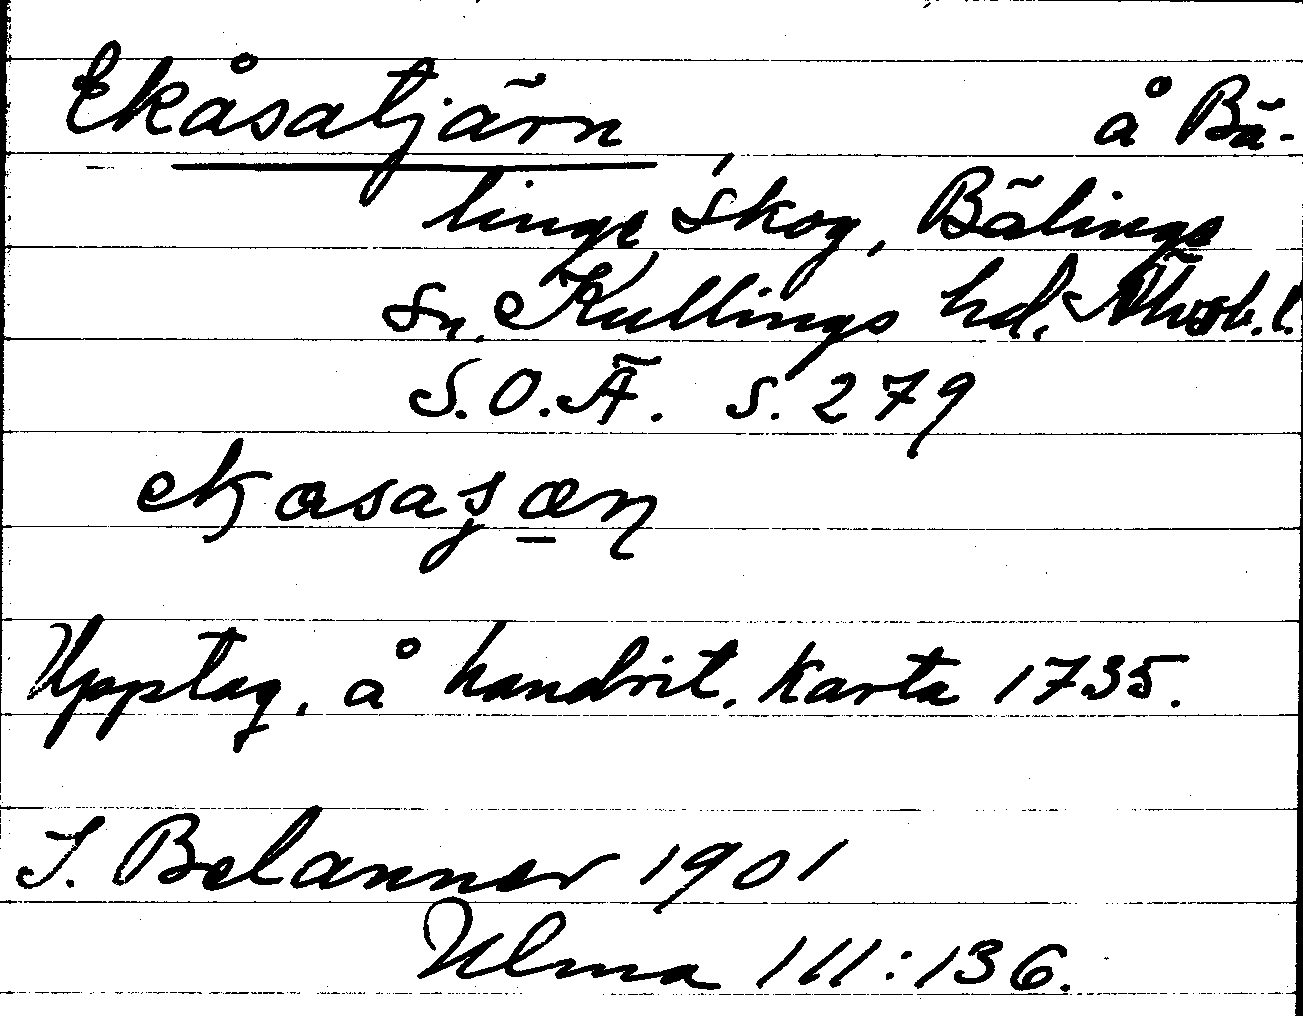 Ekåsatjärn, å Bä-
linge Skog, Bälinge
Sn, Kullings hd, Älvsb.l.
S.O.Ä. s. 279
Upptag. å handrit. karta 1735.
J. Belanner 1901
Ulma 111:136.